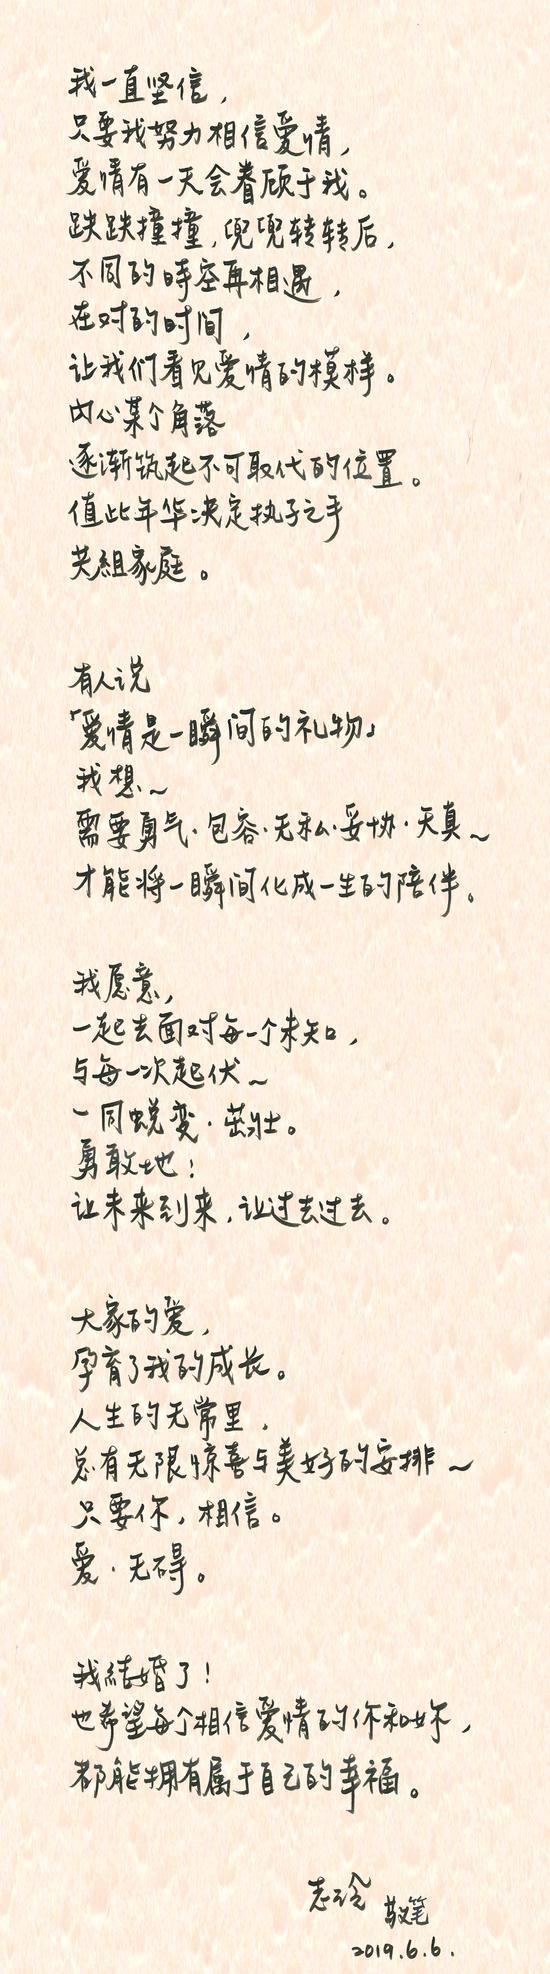 我一直坚信，
只要我努力相信爱情，
爱情有一天会眷顾于我。
跌跌撞撞，兜兜转转后，
不同的時空再相遇，
在对的时间，
让我们看见爱情的模样。
内心某个角落
逐渐筑起不可取代的位置。
值此年华决定执子之手
共組家庭。
有人说
「爱情是一瞬间的礼物」
我想~
需要勇气·包容·无私·妥协·天真~
才能将一瞬间化成一生的陪伴。
我愿意，
一起去面对每一个未知，
与每一次起伏~
一同蜕变·茁壮。
勇敢地！
让未来到来，让过去过去。
大家的爱，
孕育了我的成长。
人生的无常里，
总有无限惊喜与美好的安排~
只要你，相信。
爱·无碍。
我結婚了！
也希望每个相信爱情的你和妳，
都能拥有属于自己的幸福。
志玲 敬笔
2019.6.6.